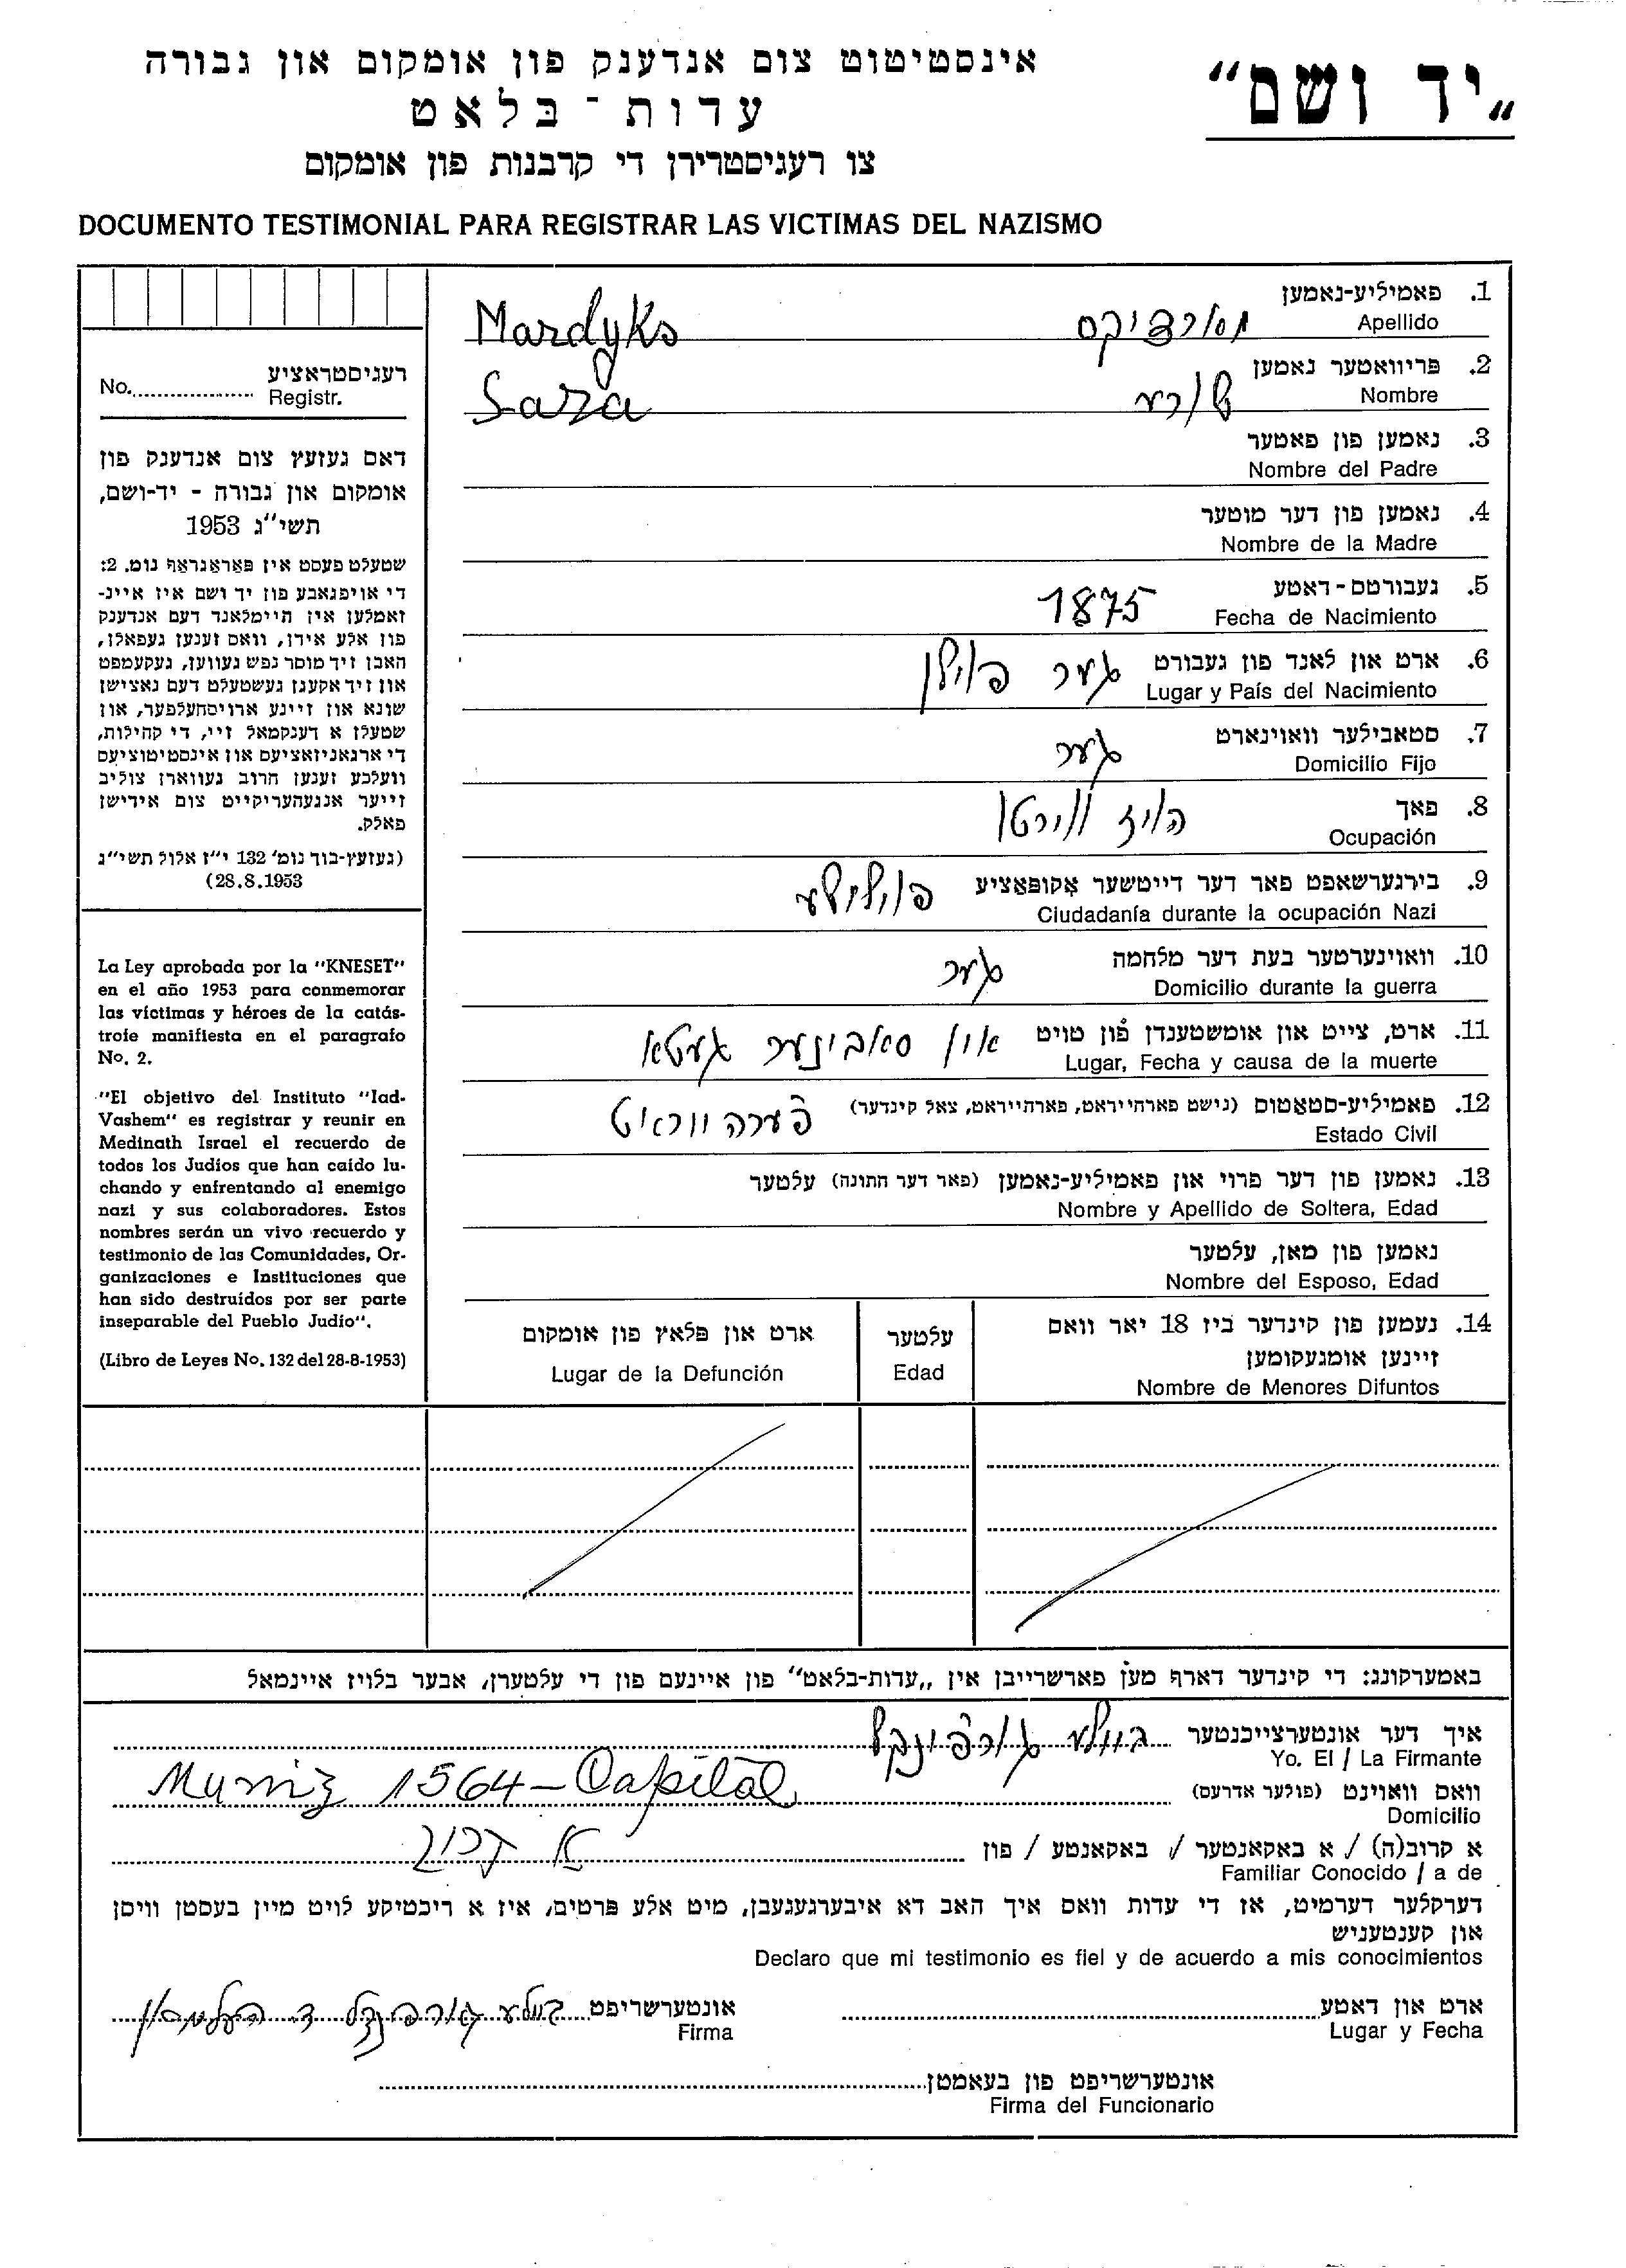 „יד ושם“
אינסטיטוט צום אנדענק פון אומקום און גבורה
עדות־בלאט
צו רעגיסטרירן די קרבנות פון אומקום
DOCUMENTO TESTIMONIAL PARA REGISTRAR LAS VICTIMAS DEL NAZISMO
רעגיסטראציע
No. Registr.
דאס געזעץ צום אנדענק פון
אומקום און גבורה - יד-ושם,
תשי״ג 1953
שטעלט פעסט אין פאראגראף נומ. 2:
די אויפגאבע פון יד ושם איז איינ-
זאמלען אין היימלאנד דעם אנדענק
פון אלע אידן, וואס זענען געפאלן,
האבן זיך מוסר נפש געווען, געקעמפט
און זיך אקעגן געשטעלט דעם נאצישן
שונא און זיינע ארויסהעלפער, און
שטעלן א דענקמאל זיי, די קהילות,
די ארגאניזאציעס און אינסטיטוציעס
וועלכע זענען חרוב געווארן צוליב
זייער אנגעהעריקייט צום אידישן
פאלק.
(געזעץ-בוך נומ׳ 132 י״ז אלול תשי״ג
28.8.1953)
La Ley aprobada por la "KNESET"
en el año 1953 para conmemorar
las víctimas y héroes de la catás-
trofe manifiesta en el paragrafo
No. 2.
"El objetivo del Instituto "Iad-
Vashem" es registrar y reunir en
Medinath Israel el recuerdo de
todos los Judios que han caído lu-
chando y enfrentando al enemigo
nazi y sus colaboradores. Estos
nombres serán un vivo recuerdo y
testimonio de las Comunidades, Or-
ganizaciones e Instituciones que
han sido destruídos por ser parte
inseparable del Pueblo Judío".
(Libro de Leyes No. 132 del 28-8-1953)
1. פאמיליע-נאמען
Apellido מארדיקס Mardyks
2. פריוואטער נאמען
Nombre שרה Sara
3. נאמען פון פאטער
Nombre del Padre
4. נאמען פון דער מוטער
Nombre de la Madre
5. געבורטס-דאטע
Fecha de Nacimiento 1875
6. ארט און לאנד פון געבורט
Lugar y País del Nacimiento גער פוילן
7. סטאבילער וואוינארט
Domicilio Fijo גער
8. פאך
Ocupación הויז ווירטן
9. בירגערשאפט פאר דער דייטשער אקופאציע
Ciudadanía durante la ocupación Nazi פוילישע
10. וואוינערטער בעת דער מלחמה
Domicilio durante la guerra גער
11. ארט, צייט און אומשטענדן פון טויט
Lugar, Fecha y causa de la muerte אין סאבינער געטא
12. פאמיליע-סטאטוס (נישט פארהייראט, פארהייראט, צאל קינדער)
Estado Civil פערהייראט
13. נאמען פון דער פרוי און פאמיליע-נאמען (פאר דער חתונה) עלטער
Nombre y Apellido de Soltera, Edad
נאמען פון מאן, עלטער
Nombre del Esposo, Edad
14. נעמען פון קינדער ביז 18 יאר וואס
זיינען אומגעקומען
Nombre de Menores Difuntos
עלטער
Edad
ארט און פלאץ פון אומקום
Lugar de la Defunción
באמערקונג: די קינדער דארף מען פארשרייבן אין „עדות-בלאט“ פון איינעם פון די עלטערן, אבער בלויז איינמאל
איך דער אונטערצייכנטער ביילע גורפינקל
Yo. El / La Firmante
וואס וואוינט (פולער אדרעס) Muniz 1564 - Capital
Domicilio
א קרוב(ה) / א באקאנטער / באקאנטע / פון א קרוב
Familiar Conocido / a de
דערקלער דערמיט, אז די עדות וואס איך האב דא איבערגעגעבן, מיט אלע פרטים, איז א ריכטיקע לויט מיין בעסטן וויסן
און קענטעניש
Declaro que mi testimonio es fiel y de acuerdo a mis conocimientos
ארט און דאטע
Lugar y Fecha
אונטערשריפט ביילע גורפינקל ד
Firma
אונטערשריפט פון בעאמטן
Firma del Funcionario